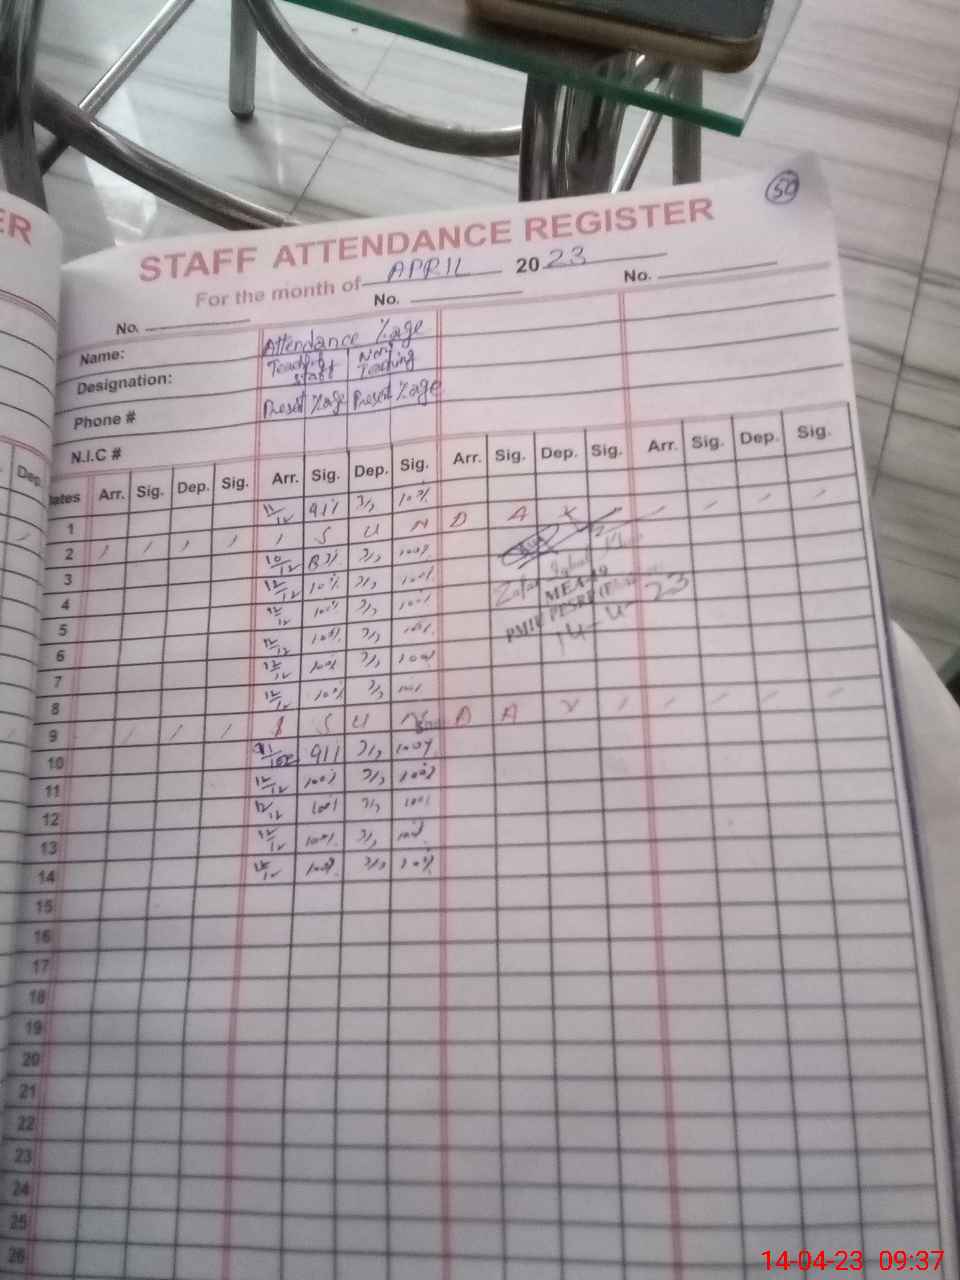 ER
50
STAFF ATTENDANCE REGISTER
For the month of APRIL 2023
No. No. No.
Name: Attendance %age
Designation: Teaching staff Non Teaching
Phone # Present %age Present %age
N.I.C #
Dep. Dates Arr. Sig. Dep. Sig. Arr. Sig. Dep. Sig. Arr. Sig. Dep. Sig. Arr. Sig. Dep. Sig.
1 11/12 91% 3/3 100%
2 S U N D A Y
3 10/12 83% 3/3 100%
4 12/12 100% 3/3 100%
5 12/12 100% 3/3 100%
6 12/12 100% 3/3 100%
7 12/12 100% 3/3 100%
8 12/12 100% 3/3 100%
9 S U N D A Y
10 11/12 911 3/3 100%
11 12/12 100% 3/3 100%
12 12/12 100% 3/3 100%
13 12/12 100% 3/3 100%
14 12/12 100% 3/3 100%
Zafar Iqbal
MEA-19
PMIU PESRP
14-4-23
15
16
17
18
19
20
21
22
23
24
25
26
14-04-23 09:37